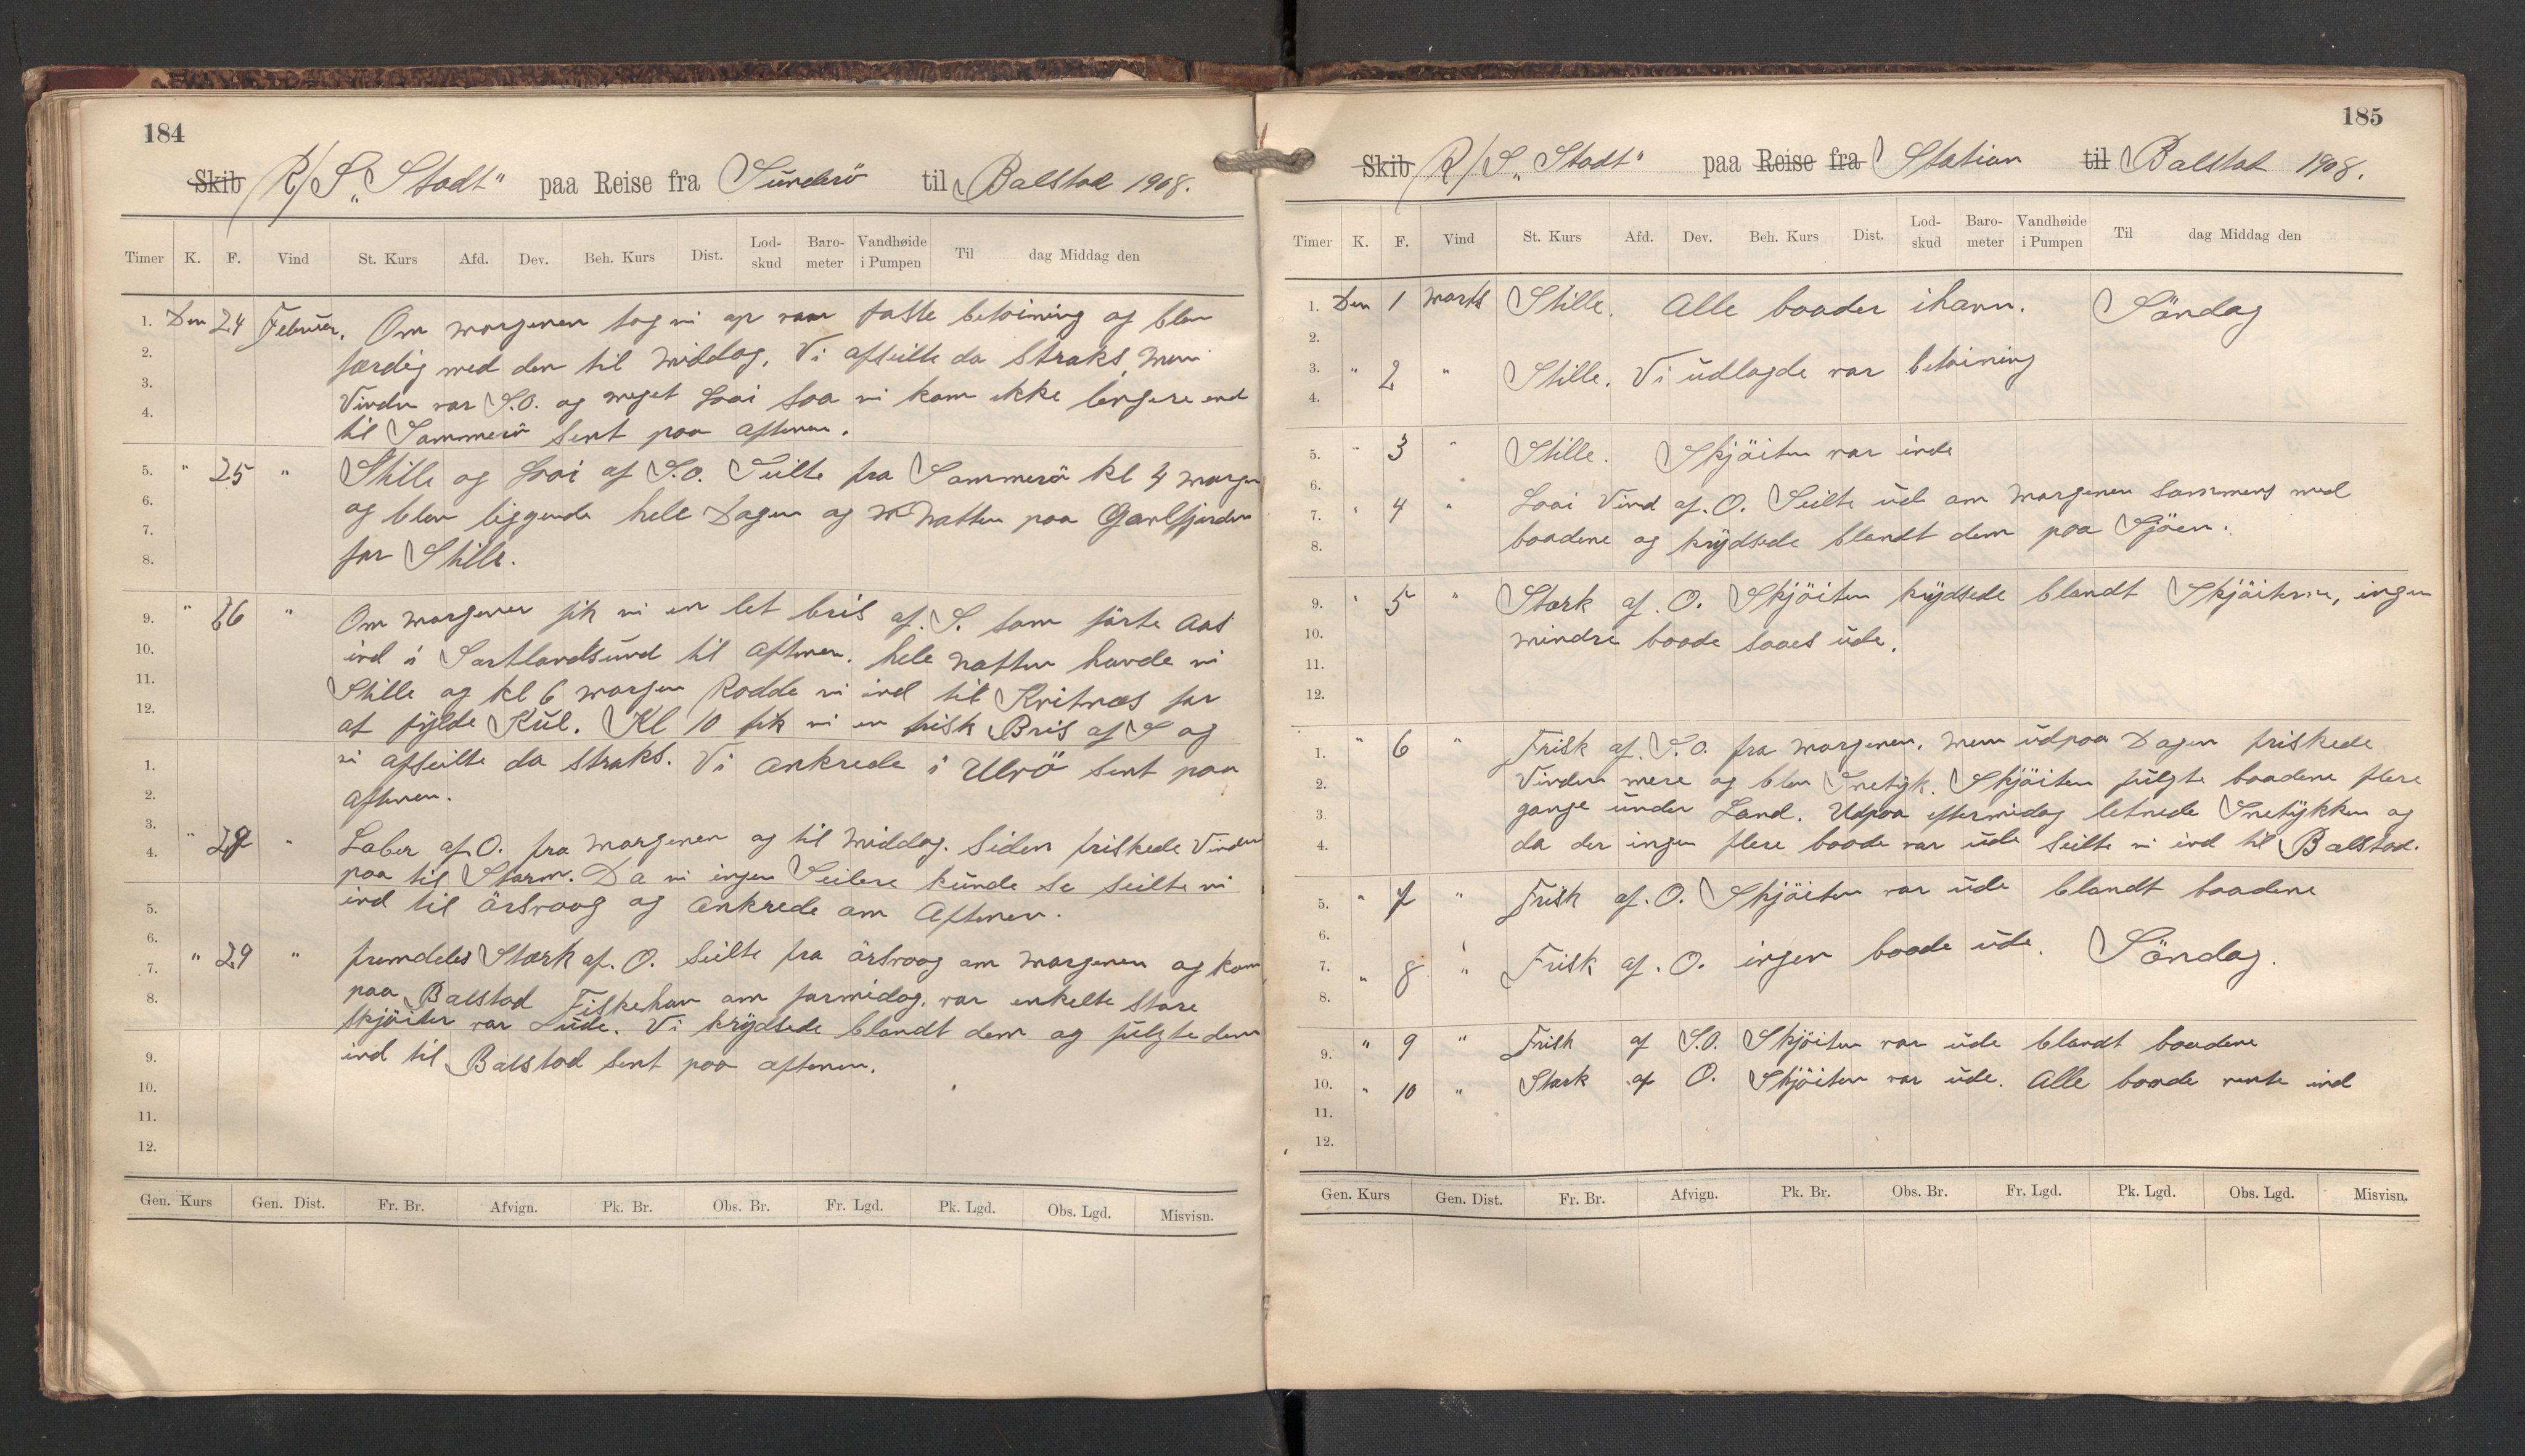 184
Skib R/S „Stadt" paa Reise fra Sunderö til Balstad 1908.
Timer K. F. Vind St. Kurs Afd. Dev. Beh. Kurs Dist. Lod-skud Baro-meter Vandhøide i Pumpen Til dag Middag den
1. Den 24 Februer. Om morgenen tog ni op vaar faste betoining og blev
2. færdig med den til middag. Vi afseilte da straks, men
3. Vinden var S.O. og meget Loai saa vi kom ikke lengere end
4. til Sommerö sent paa aftenen.
5. " 25 " Stille og Loai af S.O. Seilte fra Sommerö kl 4 morgen
6. og blev liggende hele Dagen og Natten paa Gavlfjorden
7. for Stille.
8.
9. " 26 " Om morgenen fik vi en let bris af. S. som förte aas
10. ind i Sortlandsund til Aftenen. hele Natten havde vi
11. Stille og kl 6 morgen Rodde vi ind til Kvitnæs for
12. at fylde Kul. Kl 10 fik vi en frisk Bris af S og
1. vi afseilte da straks. Vi ankrede i Ulvö sent paa
2. Aftenen.
3. " 28 " Laber af O. fra morgenen og til Middag. Siden friskede Vinden
4. paa til Storm. Da vi ingen Seilere kunde se seilte vi
5. ind til örsvaag og ankrede om Aftenen.
6.
7. " 29 " fremdeles Stærk af. O. Seilte fra örsvaag om morgenen og kom
8. paa Balstad Fiskehav om formidag. var enkelte store
skjöiter var ude. Vi krydsede blandt dem og fulgte dem
9. ind til Balstad sent paa aftenen.
10.
11.
12.
Gen. Kurs Gen. Dist. Fr. Br. Afvign. Pk. Br. Obs. Br. Fr. Lgd. Pk. Lgd. Obs. Lgd. Misvisn.
185
Skib R/S „Stadt" paa Reise fra Station til Balstad 1908.
Timer K. F. Vind St. Kurs Afd. Dev. Beh. Kurs Dist. Lod-skud Baro-meter Vandhøide i Pumpen Til dag Middag den
1. Den 1 Marts Stille. Alle baader ihavn. Söndag
2.
3. " 2 " Stille. Vi udlagde var betoining
4.
5. " 3 " Stille. Skjöiten var inde
6.
7. " 4 " Loai Vind af. O. Seilte ud om Morgenen sammens med
8. baadene og krydsede blandt dem paa Sjöen.
9. " 5 " Stærk af. O. Skjöiten krydsede blandt Skjöiterne, ingen
10. mindre baade saaes ude.
11.
12.
1. " 6 " Frisk af. S.O. fra morgenen. men udpaa Dagen friskede
2. Vinden mere og blev Snetyk. Skjöiten fulgte baadene flere
3. gange under Land. Udpaa eftermidag letnede Snetykken og
4. da der ingen flere baade var ude seilte vi ind til Balstad.
5. " 7 " Frisk af. O. Skjöiten var ude blandt baadene
6.
7. " 8 " Frisk af. O. ingen baade ude. Söndag.
8.
9. " 9 " Frisk af S.O. Skjöiten var ude blandt baadene
10. " 10 " Stærk af O. Skjöiten var ude. Alle baade vente ind
11.
12.
Gen. Kurs Gen. Dist. Fr. Br. Afvign. Pk. Br. Obs. Br. Fr. Lgd. Pk. Lgd. Obs. Lgd. Misvisn.